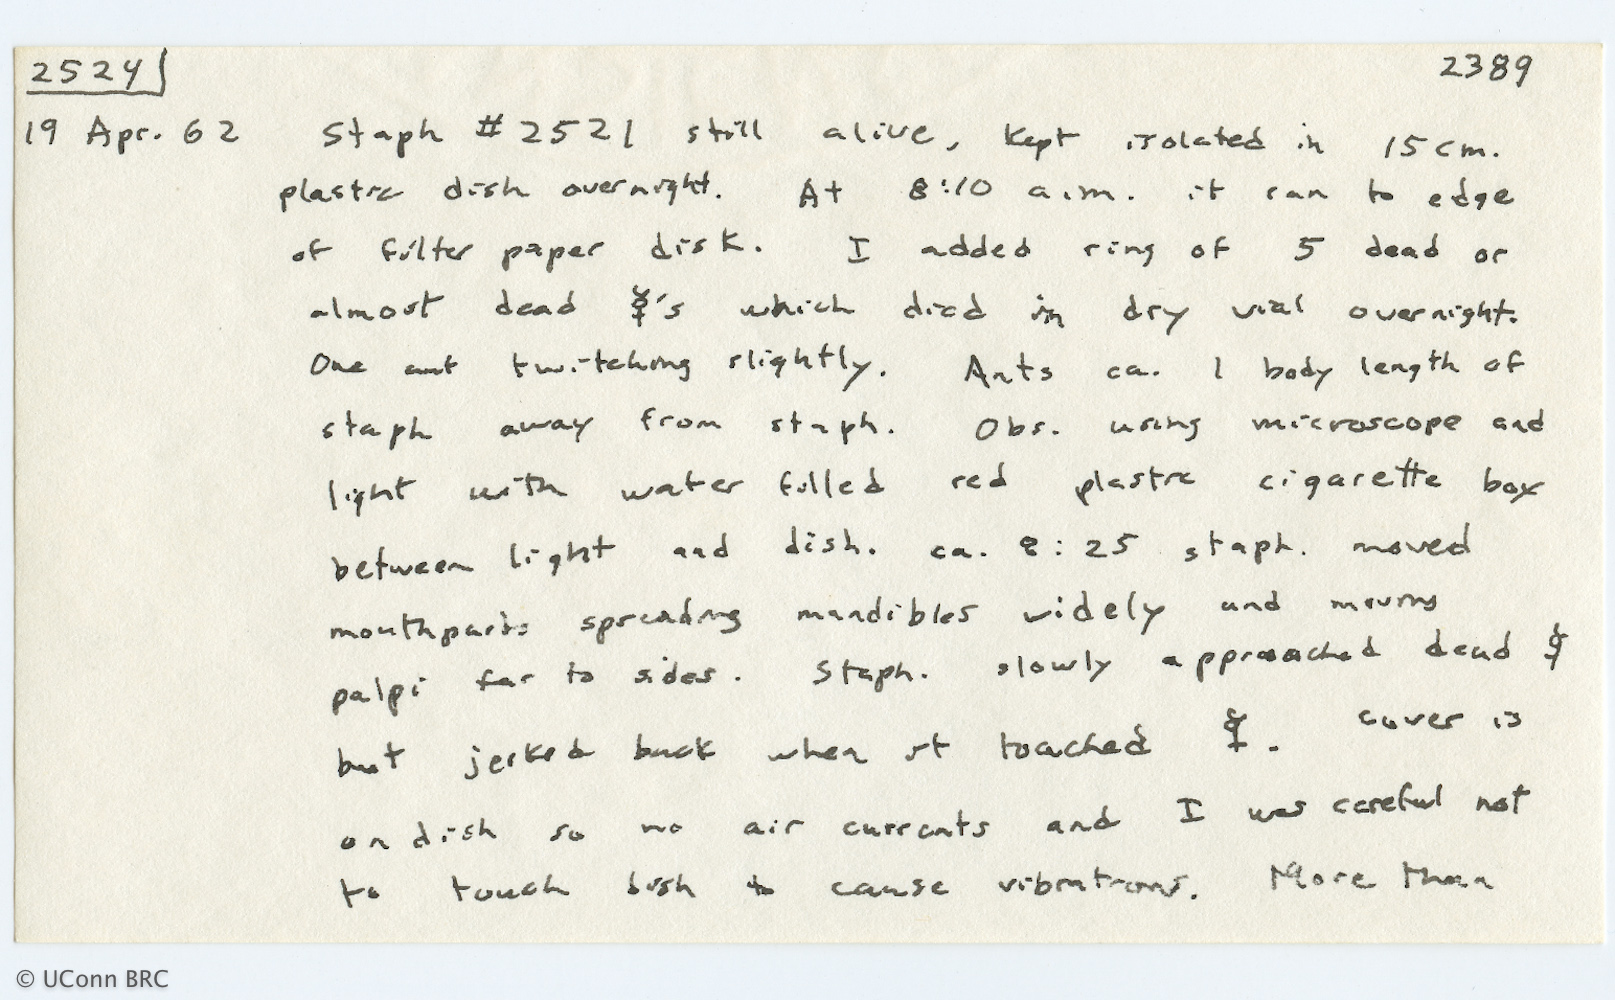 2524 2389
19 Apr. 62 Staph #2521 still alive, kept isolated in 15 cm.
plastic dish overnight. At 8:10 a.m. it ran to edge
of filter paper disk. I added ring of 5 dead or
almost dead ☿'s which died in dry vial overnight.
One ant twitching slightly. Ants ca. 1 body length of
staph away from staph. Obs. using microscope and
light with water filled red plastic cigarette box
between light and dish. ca. 8:25 staph. moved
mouthparts spreading mandibles widely and moving
palpi far to sides. Staph. slowly approached dead ☿
but jerked back when it touched ☿. Cover is
on dish so no air currents and I was careful not
to touch dish to cause vibrations. More than
© UConn BRC